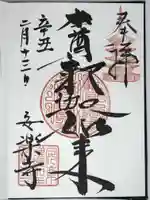 奉拝
本尊 釈迦如来
安楽寺
辛丑
二月十三日